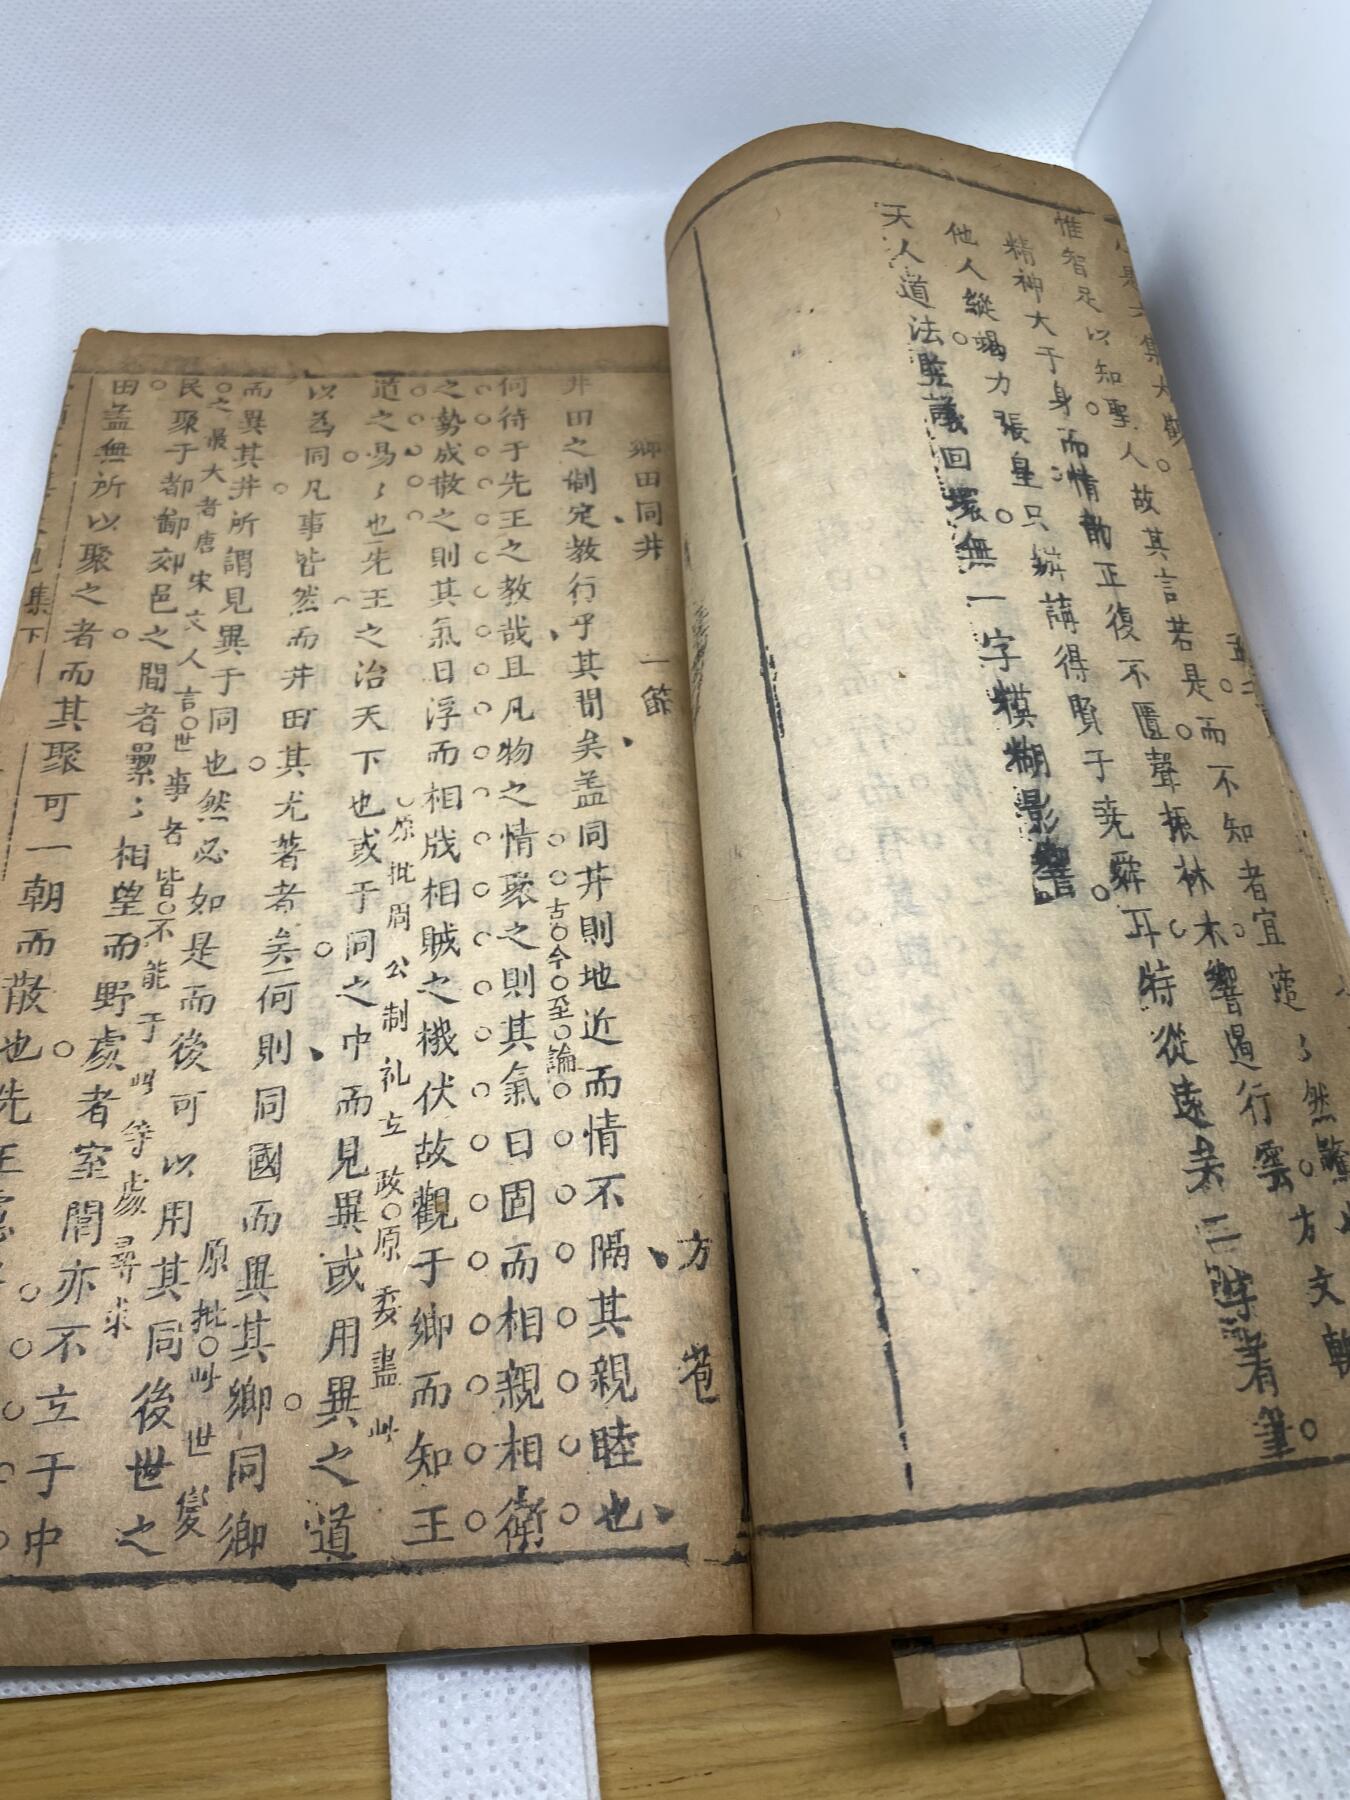 惟智足以知聖人故其言若是。而不知者宜遑〻然驚
精神大于身而情韵正復不匱聲振林木。響遏行雲。方文輈。
他人縱竭力張皇。只辦講得賢于堯舜耳。特從遠者二字着筆
天人道法駿議回環無一字模糊影響
鄉田同井 一節 方苞
井田之制定教行乎其間矣盖同井則地近而情不隔其親睦也
古今至論
何待于先王之教哉且凡物之情聚之則其氣日固而相親相衛
之勢成散之則其氣日浮而相戕相賊之機伏故觀于鄉而知王
原批周公制礼立政原委盡此
道之易〻也先王之治天下也或于同之中而見異或用異之道
以為同凡事皆然而井田其尤著者矣何則同國而異其鄉同鄉
原批此世變
而異其井所謂見異于同也然必如是而後可以用其同後世之
之最大者唐宋文人言世事者皆不能于此等處尋求
民聚于都鄙郊邑之間者纍〻相望而野處者室閭亦不立于中
田盖無所以聚之者而其聚可一朝而散也先王
集下